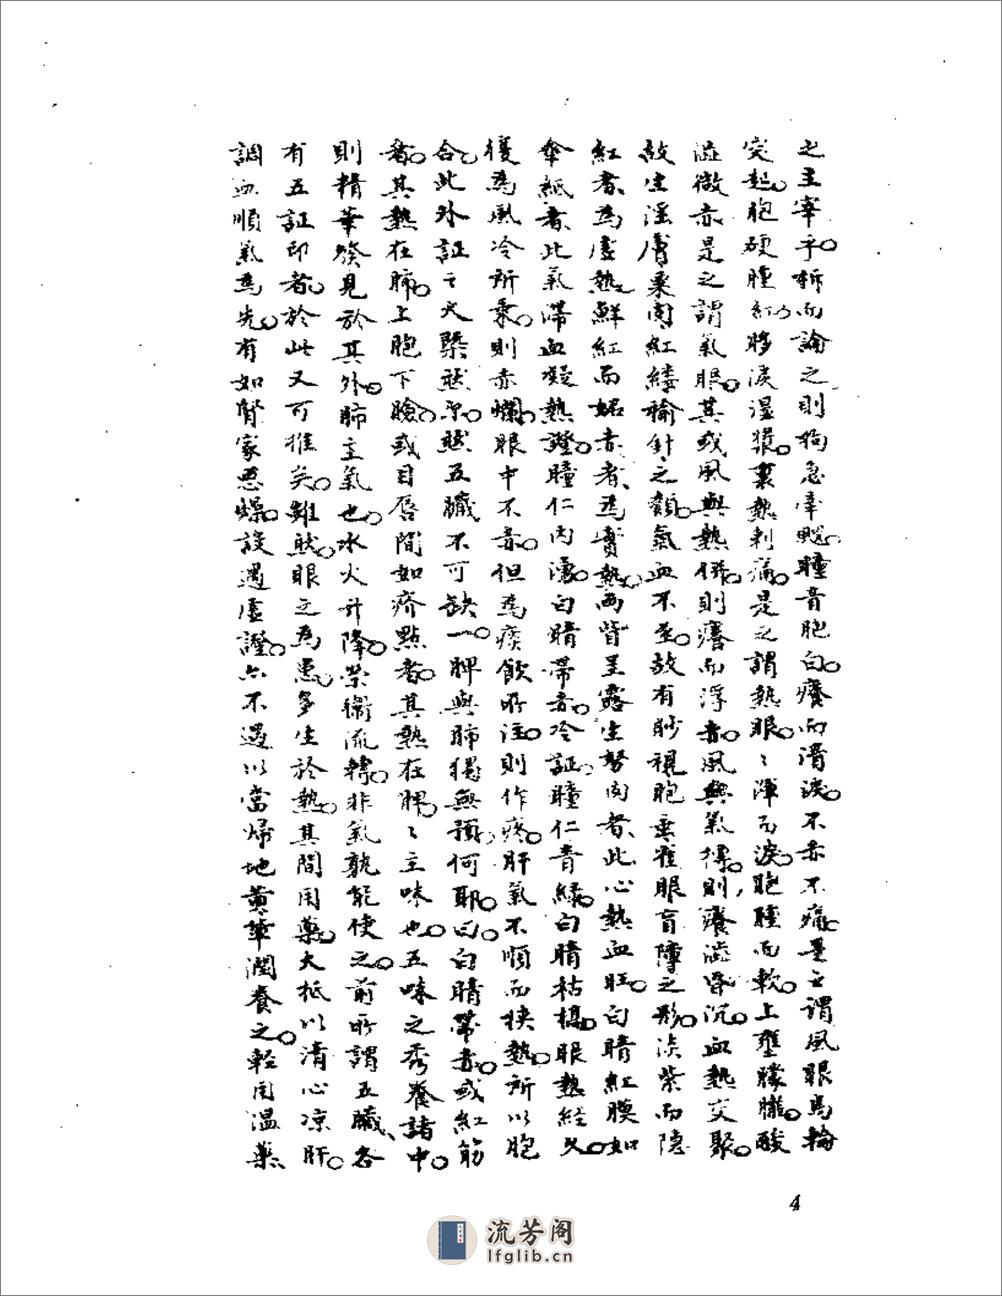 之主宰乎析而論之則拘急牽飕瞳青胞白癢而清淚不赤不痛是之謂風眼烏輪
突起胞硬腫紅眵淚濕漿裏熱刺痛是之謂熱眼〻渾而淚胞腫而軟上壅朦朧酸
澁微赤是之謂氣眼其或風與熱併則癢而浮赤風與氣摶則癢澁昏沉血熱交聚
故生淫膚粟肉紅縷榆針之類氣血不至故有眇視胞垂雀眼盲障之形淡紫而隱
紅者為虛熱鮮紅而妬赤者為實熱兩眥呈露生努肉者此心熱血旺白睛紅膜如
傘紙者此氣滯血凝熱證瞳仁內湧白睛帶赤冷証瞳仁青綠白睛枯槁眼熱經久
復為風冷所乘則赤爛眼中不赤但為痰飲所注則作疼肝氣不順而挾熱所以胞
合此外証之大槩然尔然五臟不可缺一脾與肺獨無預何耶曰白睛帶赤或紅筋
者其熱在肺上胞下瞼或目唇間如疥點者其熱在脾〻主味也五味之秀養諸中
則精華發見於其外肺主氣也水火升降荣衛流轉非氣孰能使之前所謂五臟各
有五証印者於此又可推矣雖然眼之為患多生於熱其間用藥大抵以清心凉肝
調血順氣為先有如腎家惡燥設遇虛證亦不過以當歸地黃輩潤養之輕用溫藥
4
流芳阁
lfglib.cn